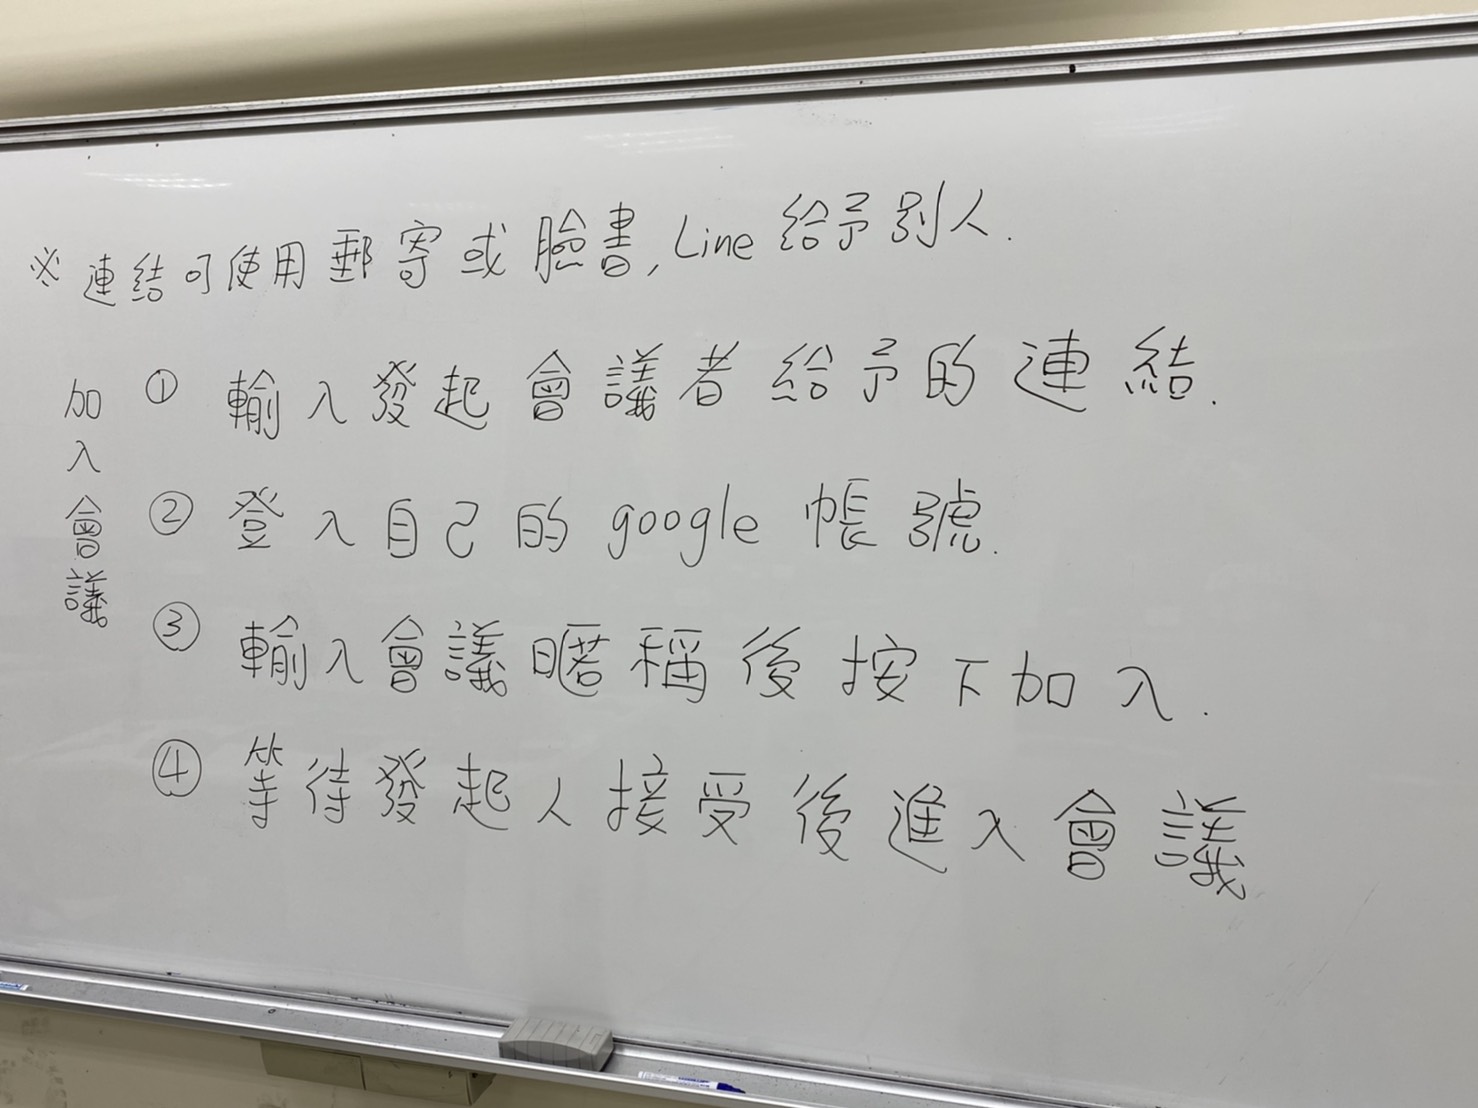 ※ 連結可使用郵寄或臉書, Line 給予別人.
加入會議
① 輸入發起會議者給予的連結.
② 登入自己的 google 帳號.
③ 輸入會議暱稱後按下加入.
④ 等待發起人接受後進入會議